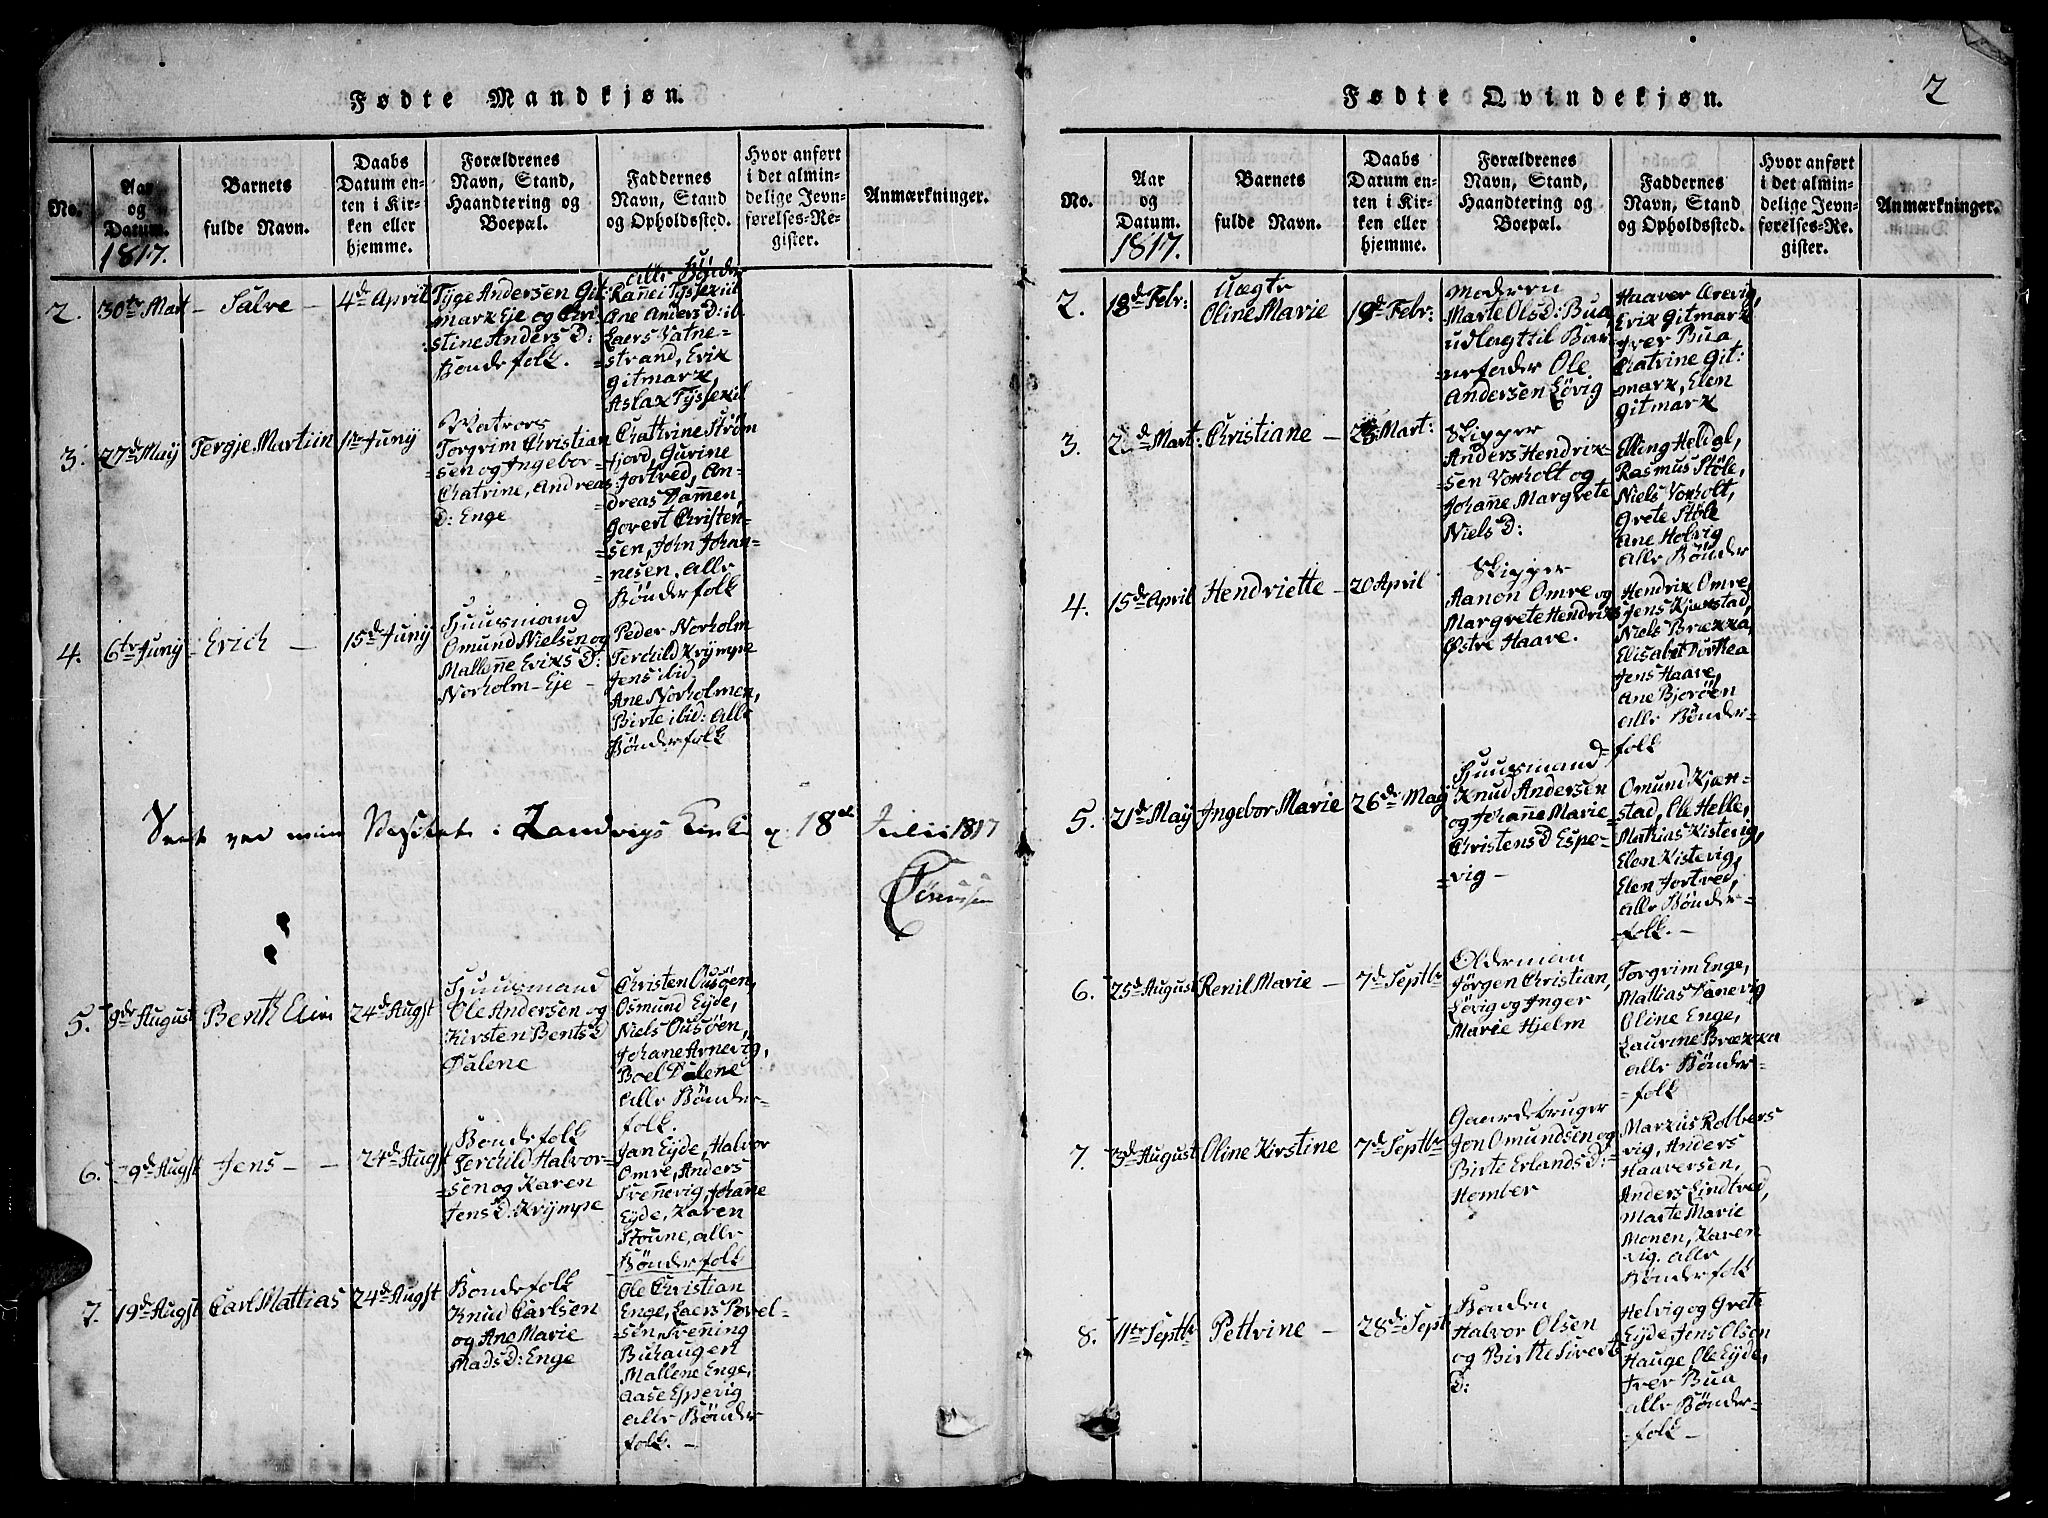 Fødte Mandkjøn.
No.
Aar
og
Datum.
1817.
Barnets
fulde Navn.
Daabs
Datum en-
ten i Kir-
ken eller
hjemme.
Forældrenes
Navn, Stand,
Haandtering og
Boepæl.
Faddernes
Navn, Stand
og Opholdssted.
Hvor anført
i det almin-
delige Jevn-
førelses-Re-
gister.
Anmærkninger.
2. 30te Mart - Salve - 4de April
Tÿge Andersen Git:
mark Eje og Chri
stine Anders D:
Bondefolk.
alle Bønder
Ranei Tÿssexiil
Ane Anders D: ib.
Laers Vatne-
=strand, Erik
Gitmark,
Aslak Tÿssexiil
3. 27de Maÿ Tergje Martiin 1ste Junÿ
Matros
Torgrim Christian
=sen og Ingebor
Chatrine, Andreas
D: Enge
Chathrine Strøm
fjord, Gurine
Fortved, An-
dreas Dam̄en,
Govert Christen-
=sen, John Johan-
=nesen, alle
Bønderfolk
4. 6te Junÿ - Erich - 15de Junÿ
Huusmand
Omund Nielsen og
Mallen̄e Eriks D:
Norholm-Eje -
Peder Norholm
Terchild Krÿmpe
Jens ibid
Ane Norholmen,
Birte ibid: alle
Bønderfolk
i Landvigs Kirke 18de Julii 1817
5. 9de August Benth 24de Augst
Huusmand
Ole Andersen og
Kirsten Bents D
Dalene
Christen Ousøen,
Osmund Eÿde,
Niels Ousøen,
Johane Arnevig,
Boel Dalene
alle Bønder-
folk.
6. 29de Augst Jens - - 24de Augst
Bondefolk
Terchild Halvor-
=sen og Karen
Jens D: Krÿmpe
Jan Eÿde, Halvor
Omre, Anders
Sven̄evig, Johan̄e
Eÿde, Karen
Stoune, alle
Bønderfolk
7. 19de Augst Carl Mattias 24de Augst
Bondefolk
Knud Carlsen
og Ane Marie
Mads D: Enge
Ole Christian
Enge, Laers Povel-
=sen, Sven̄ing
Buhaugen
Mallene Enge,
Aase Espevig
alle Bønder
folk. -
Fødte Qvindekjøn.
2
No.
Aar
og
Datum.
1817.
Barnets
fulde Navn.
Daabs
Datum en-
ten i Kir-
ken eller
hjemme.
Forældrenes
Navn, Stand,
Haandtering og
Boepæl.
Faddernes
Navn, Stand
og Opholdssted.
Hvor anført
i det almin-
delige Jevn-
førelses-Re-
gister.
Anmærkninger.
2. 18de Febr:
Uægte
Oline Marie 19de Febr:
Moderen
Marte Ols D: Bua,
udlagt til Bar
=nefader Ole
Andersen Løvig
Haaver Arevig,
Erik Gitmark
Iver Bua
Chatrine Git:
mark, Elen
Gitmark
3. Mart: Christiane - Mart:
Skipper
Anders Hendrik-
sen Vorholt og
Johan̄e Margrete
Niels D:
Elling Heldal,
Rasmus Støle,
Niels Vorholt,
Grete Støle
Ane Holvig
alle Bønder
4. 15de April Hendriette - 20 April
Skipper
Aanon Omre og
Margrete Hendriks
Østre Haave.
Hendrik Omre,
Jens Kjærstad,
Niels Brekka,
Elisabet Dorthea
Jens Haave,
Ane Bjorøen
alle Bønder-
=folk
5. 21de Maÿ Ingebor Marie 26de Maÿ
Huusmand
Knud Andersen
og Johan̄e Marie
Christens D Espe-
=vig -
Omund Kjæn-
=stad, Ole Helle,
Mathias Kistevig,
Elen Kistevig,
Elen Fortved,
alle Bønder-
=folk. -
6. 25de August Renil Marie - 7de Septbr
Olderman
Jørgen Christian,
Løvig og Inger
Marie Hjelm
Torgrim Enge,
Mattias Danevig
Oline Enge,
Laurine Brekka
alle Bønder-
=folk
7. 3de August Oline Kirstine 7de Septbr
Gaardebruger
Jon Omundsen og
Birte Erlands D:
Homber
Markus Kobbers
vig, Anders
Haaversen,
Anders Lindtved,
Marte Marie
Monen, Karen
Vig. alle
Bønderfolk
8. 11te Septbr Pettvine - 28de Sept
Bonden
Halvor Olsen
og Birthe Siverts
D:
Helvig og Grete
Eÿde, Jens Olsen
Hauge, Ole Eÿde,
Iver Bua
alle Bønder-
=folk -